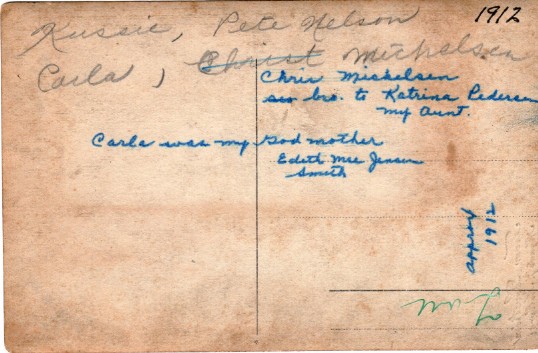 1912
Kussie, Pete Nelson
Carla, Christ Mickelsen
Chris Mickelsen
bro. to Katrina Pedersen
My Aunt.
Carla was my God mother
Edith Mae Jensen
Smith
approx
1912